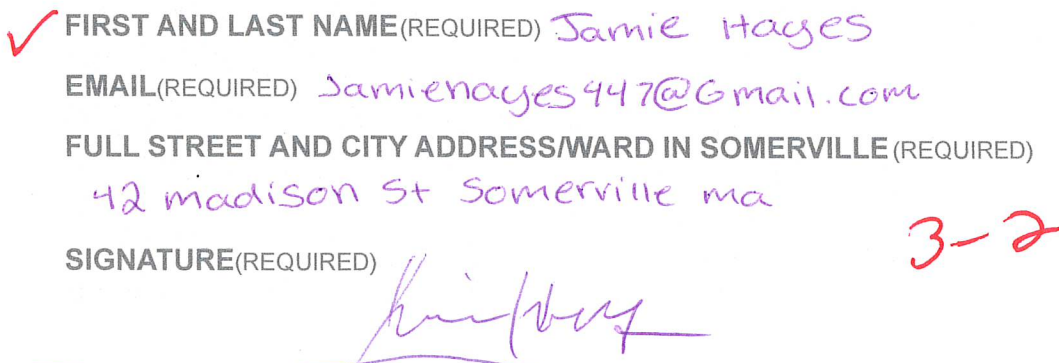 ✓ FIRST AND LAST NAME(REQUIRED) Jamie Hayes
EMAIL(REQUIRED) Jamiehayes447@Gmail.com
FULL STREET AND CITY ADDRESS/WARD IN SOMERVILLE (REQUIRED)
42 madison St Somerville ma
3-2
SIGNATURE(REQUIRED)